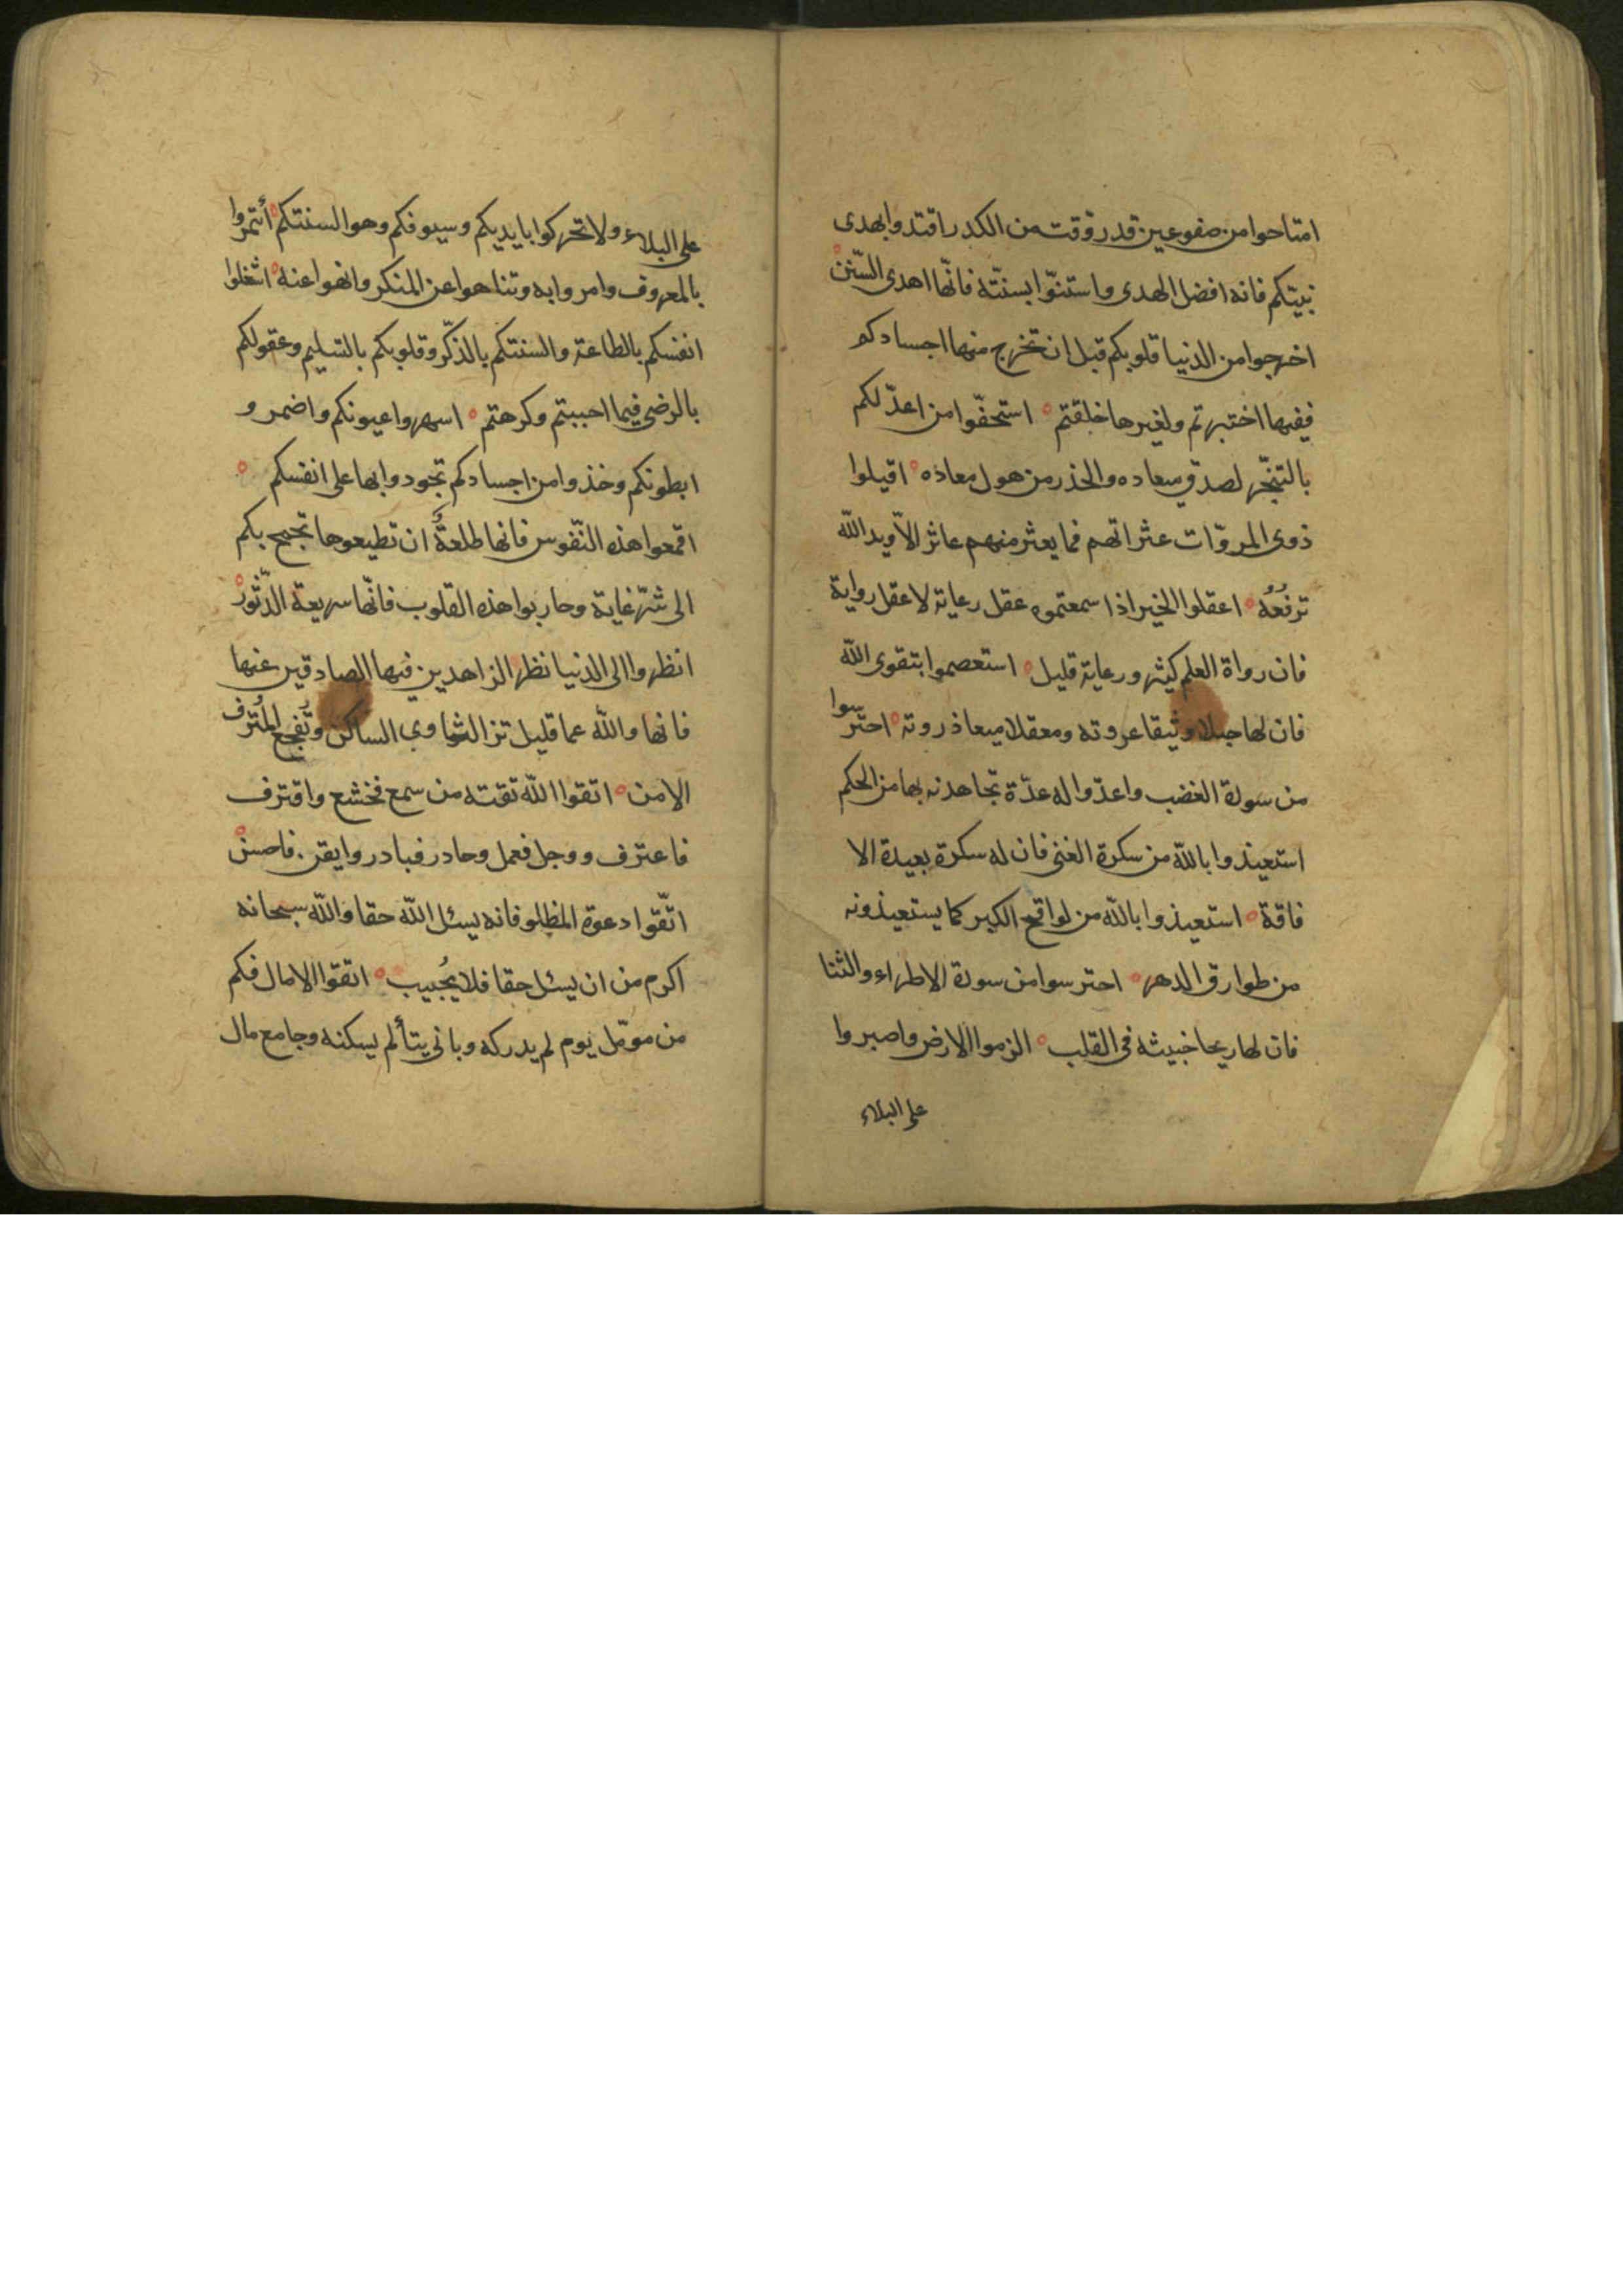 امتاحوا من صفو عين قد روقت من الكدر اقتدوا بهدى
نبيتكم فانه افضل الهدى واستنّوا بسنّته فانّها اهدى السّنن
اخرجوا من الدنيا قلوبكم قبل ان تخرج منها اجسادكم
ففيها اختبرتم ولغيرها خلقتم استحقّوا من اعدّ لكم
بالتنجّز لصدق ميعاده والحذر من هول معاده اقيلوا
ذوى المروّات عثراتهم فما يعثر منهم عاثر الاّ ويد اللّه
ترفعُه اعقلوا الخير اذا سمعتموه عقل رعاية لا عقل رواية
فان رواة العلم كثير ورعاية قليل استعصموا بتقوى اللّه
فان لها حبلا وثيقا عروته ومعقلا ميعا ذروته احترسوا
من سورة الغضب واعدّوا له عدّة تجاهدنه بها من الحكم
استعيذوا باللّه من سكرة الغنى فان له سكرة بعيدة الا
فاقة استعيذوا باللّه من لواقح الكبر كما يستعيذونه
من طوارق الدهر احترسوا من سورة الاطراء والثنا
فان لها ريحا خبيثه فى القلب الزموا الارض واصبروا
على البلاء
على البلاء ولا تحركوا بايديكم وسيوفكم وهوا السنتكم أتمروا
بالمعروف وامروا به وتناهوا عن المنكر وانهوا عنه اشغلوا
انفسكم بالطاعة والسنتكم بالذكّر وقلوبكم بالتسليم وعقولكم
بالرضى فيما احببتم وكرهتم اسهروا عيونكم واضمرو
ابطونكم وخذوا من اجسادكم تجودوا بها على انفسكم
اقمعوا هذه النّفوس فانها طلعةٌ ان تطيعوها تجمح بكم
الى شرّ غاية وحاربوا هذه القلوب فانّها سريعة الدّثور
انظروا الى الدنيا نظر الزاهدين فيها الصادقين عنها
فانها واللّه عما قليل تزال الثاوي الساكن وتفجع المُترف
الامن اتقوا اللّه تقته من سمع فخشع واقترف
فاعترف ووجل فعمل وحادر فبادر وايقن فاحسن
اتّقوا دعوة المظلو فانه يسئل اللّه حقا واللّه سبحانه
اكرم من ان يسئل حقا فلا يُجيب اتقوّا الامال فكم
من مومّل يوم لم يدركه وبانى يتأ لم يسكنه وجامع مال